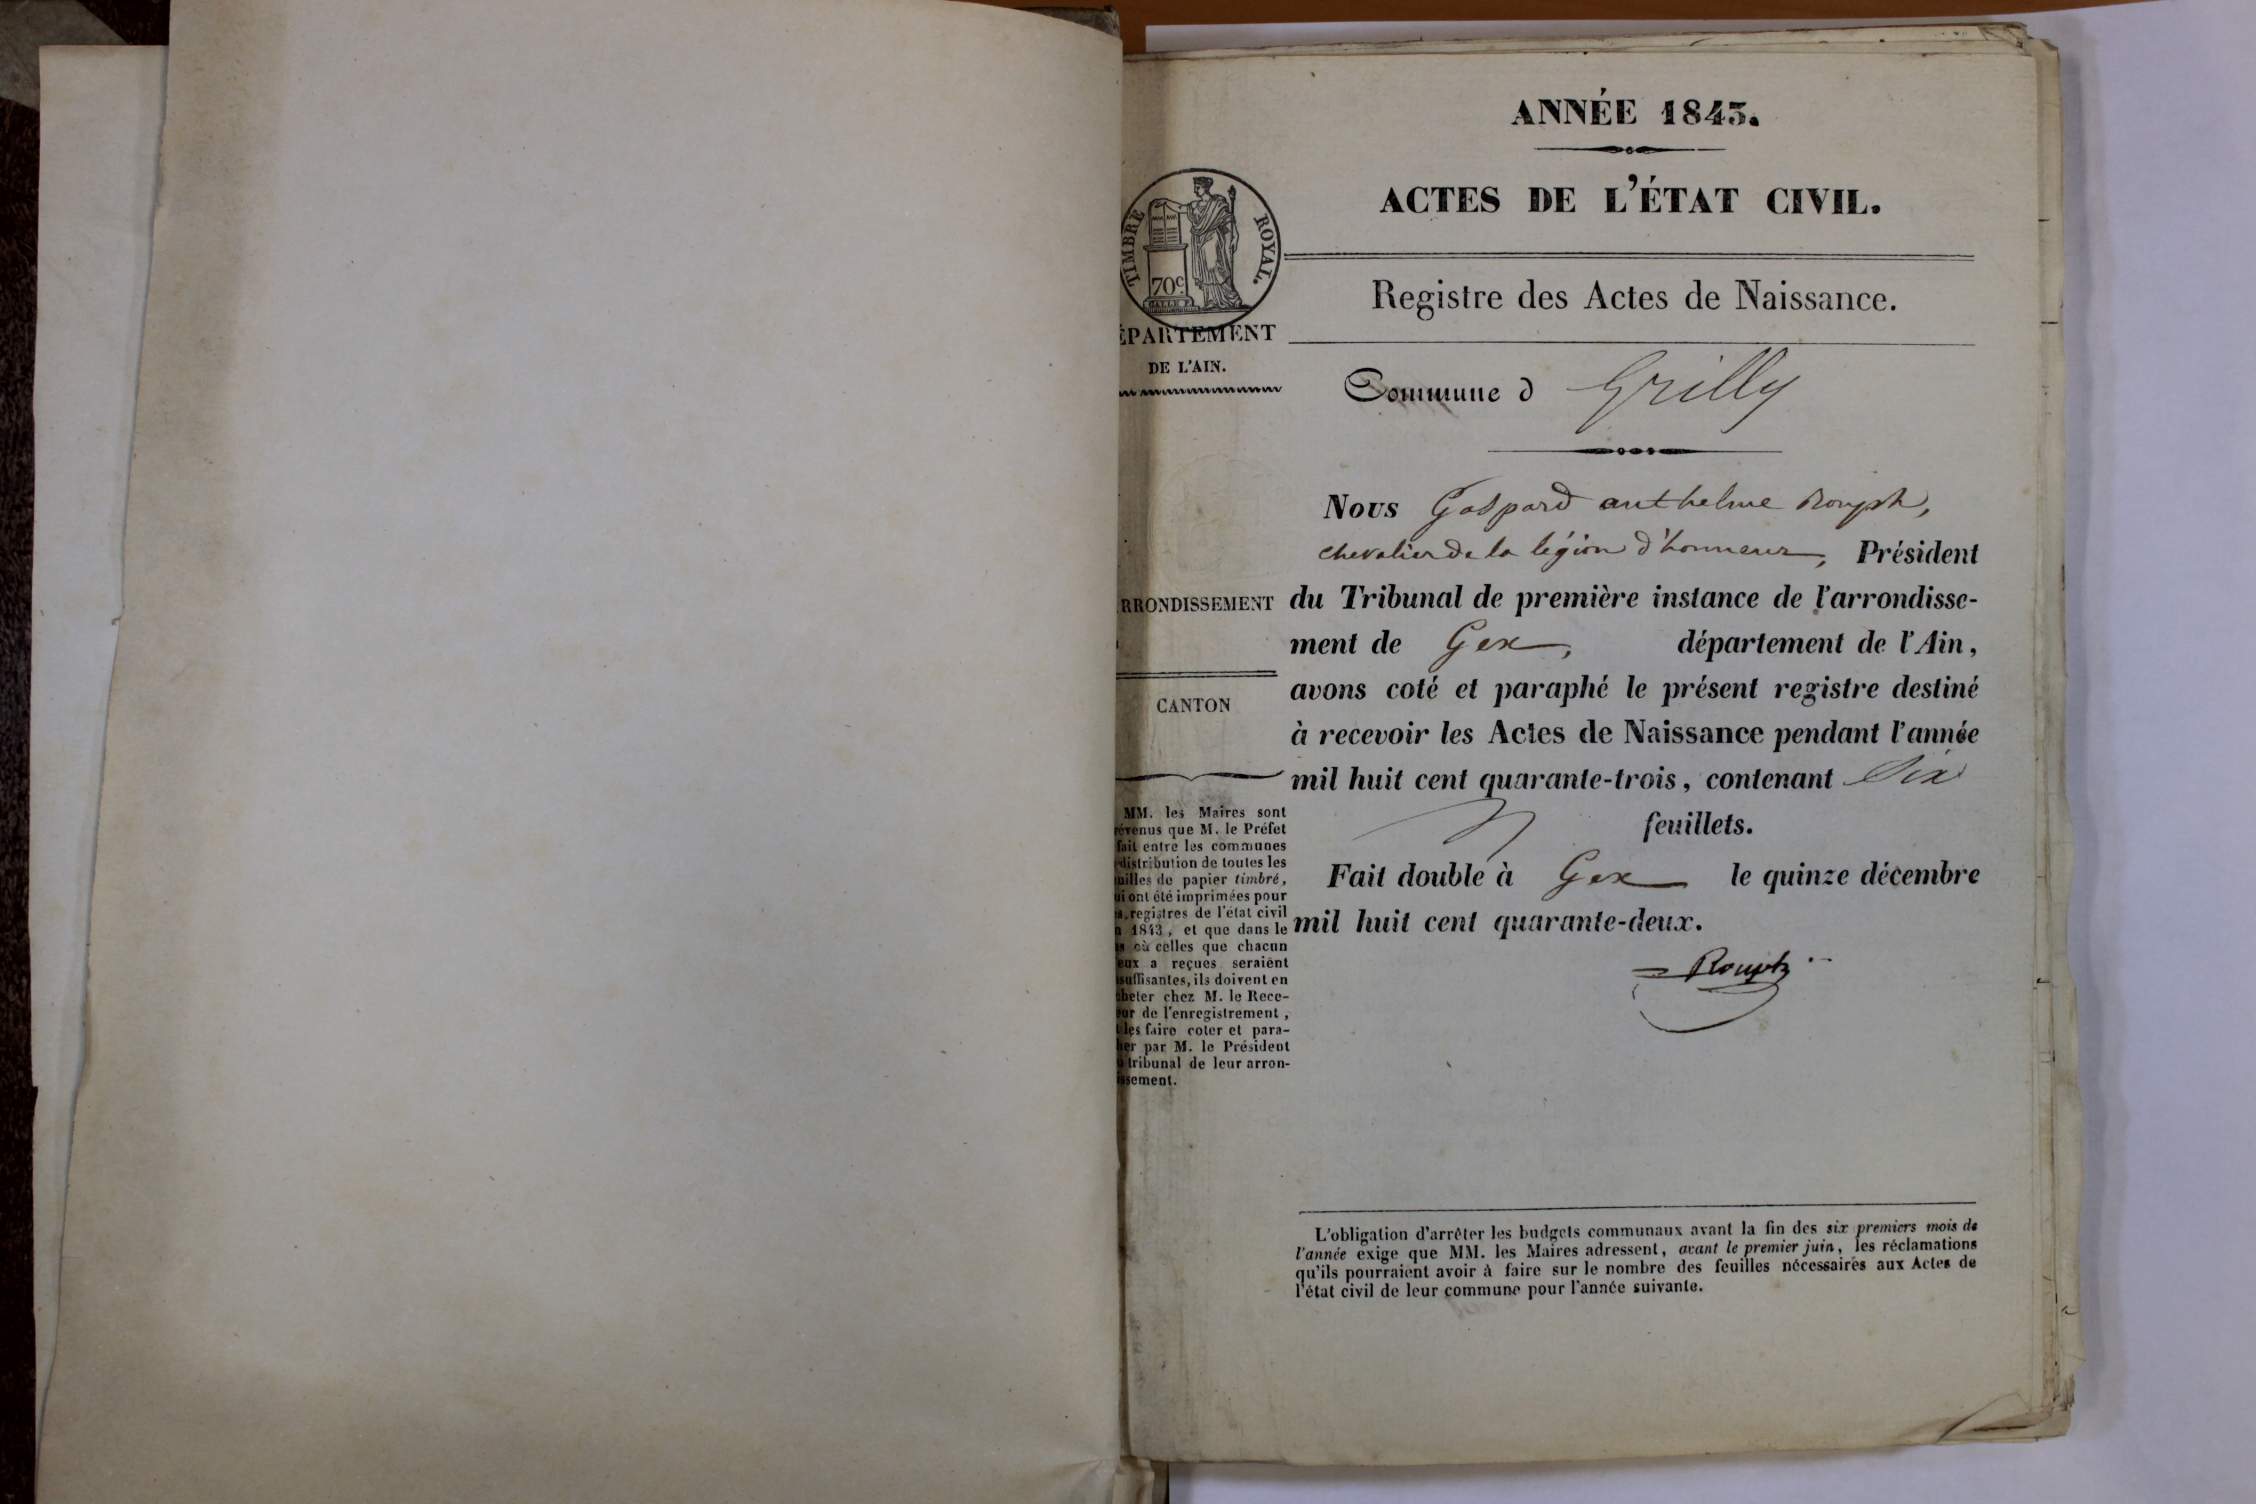 ANNÉE 1843.
ACTES DE L'ÉTAT CIVIL.
TIMBRE ROYAL.
70c
Registre des Actes de Naissance.
ÉPARTEMENT
DE L'AIN.
Commune d Grilly
Nous Gaspard anthelme Rouph,
chevalier de la légion d'honneur, Président
du Tribunal de première instance de l'arrondisse-
ment de Gex, département de l'Ain,
avons coté et paraphé le présent registre destiné
à recevoir les Actes de Naissance pendant l'année
mil huit cent quarante-trois, contenant Six
feuillets.
Fait double à Gex le quinze décembre
mil huit cent quarante-deux.
RRONDISSEMENT
CANTON
MM. les Maires sont
évenus que M. le Préfet
fait entre les communes
distribution de toutes les
uilles de papier timbré,
ui ont été imprimées pour
s registres de l'état civil
n 1843, et que dans le
s où celles que chacun
eux a reçues seraient
suffisantes, ils doivent en
heter chez M. le Rece-
eur de l'enregistrement,
les faire coter et para-
her par M. le Président
tribunal de leur arron-
issement.
L'obligation d'arrêter les budgets communaux avant la fin des six premiers mois de
l'année exige que MM. les Maires adressent, avant le premier juin, les réclamations
qu'ils pourraient avoir à faire sur le nombre des feuilles nécessaires aux Actes de
l'état civil de leur commune pour l'année suivante.